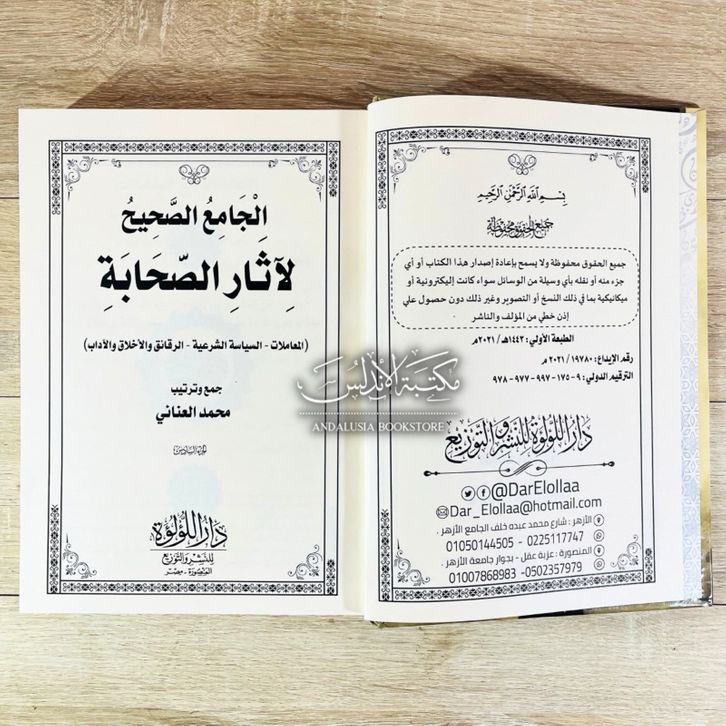 بسم الله الرحمن الرحيم
جميع الحقوق محفوظة
جميع الحقوق محفوظة ولا يسمح بإعادة إصدار هذا الكتاب أو أي
جزء منه أو نقله بأي وسيلة من الوسائل سواء كانت إليكترونية أو
ميكانيكية بما في ذلك النسخ أو التصوير وغير ذلك دون حصول علي
إذن خطي من المؤلف والناشر
الطبعة الأولي: ١٤٤٣هـ / ٢٠٢١ م
رقم الإيداع: ١٩٧٨٠ / ٢٠٢١ م
الترقيم الدولي: ٩-١٧٥-٩٩٧-٩٧٧-٩٧٨
دار اللؤلؤة للنشر والتوزيع
@DarElollaa
Dar_Elollaa@hotmail.com
الأزهر : شارع محمد عبده خلف الجامع الأزهر .
01050144505 - 0225117747
المنصورة : عزبة عقل - بجوار جامعة الأزهر .
01007868983 -0502357979
الْجَامِعُ الصَّحِيحُ
لِآثَارِ الصَّحَابَةِ
(المعاملات - السياسة الشرعية - الرقائق والأخلاق والآداب)
جمع وترتيب
محمد العناني
الجزء السادس
دار اللؤلؤة
للنشر والتوزيع
المنصورة - مصر
مكتبة الأندلس
ANDALUSIA BOOKSTORE